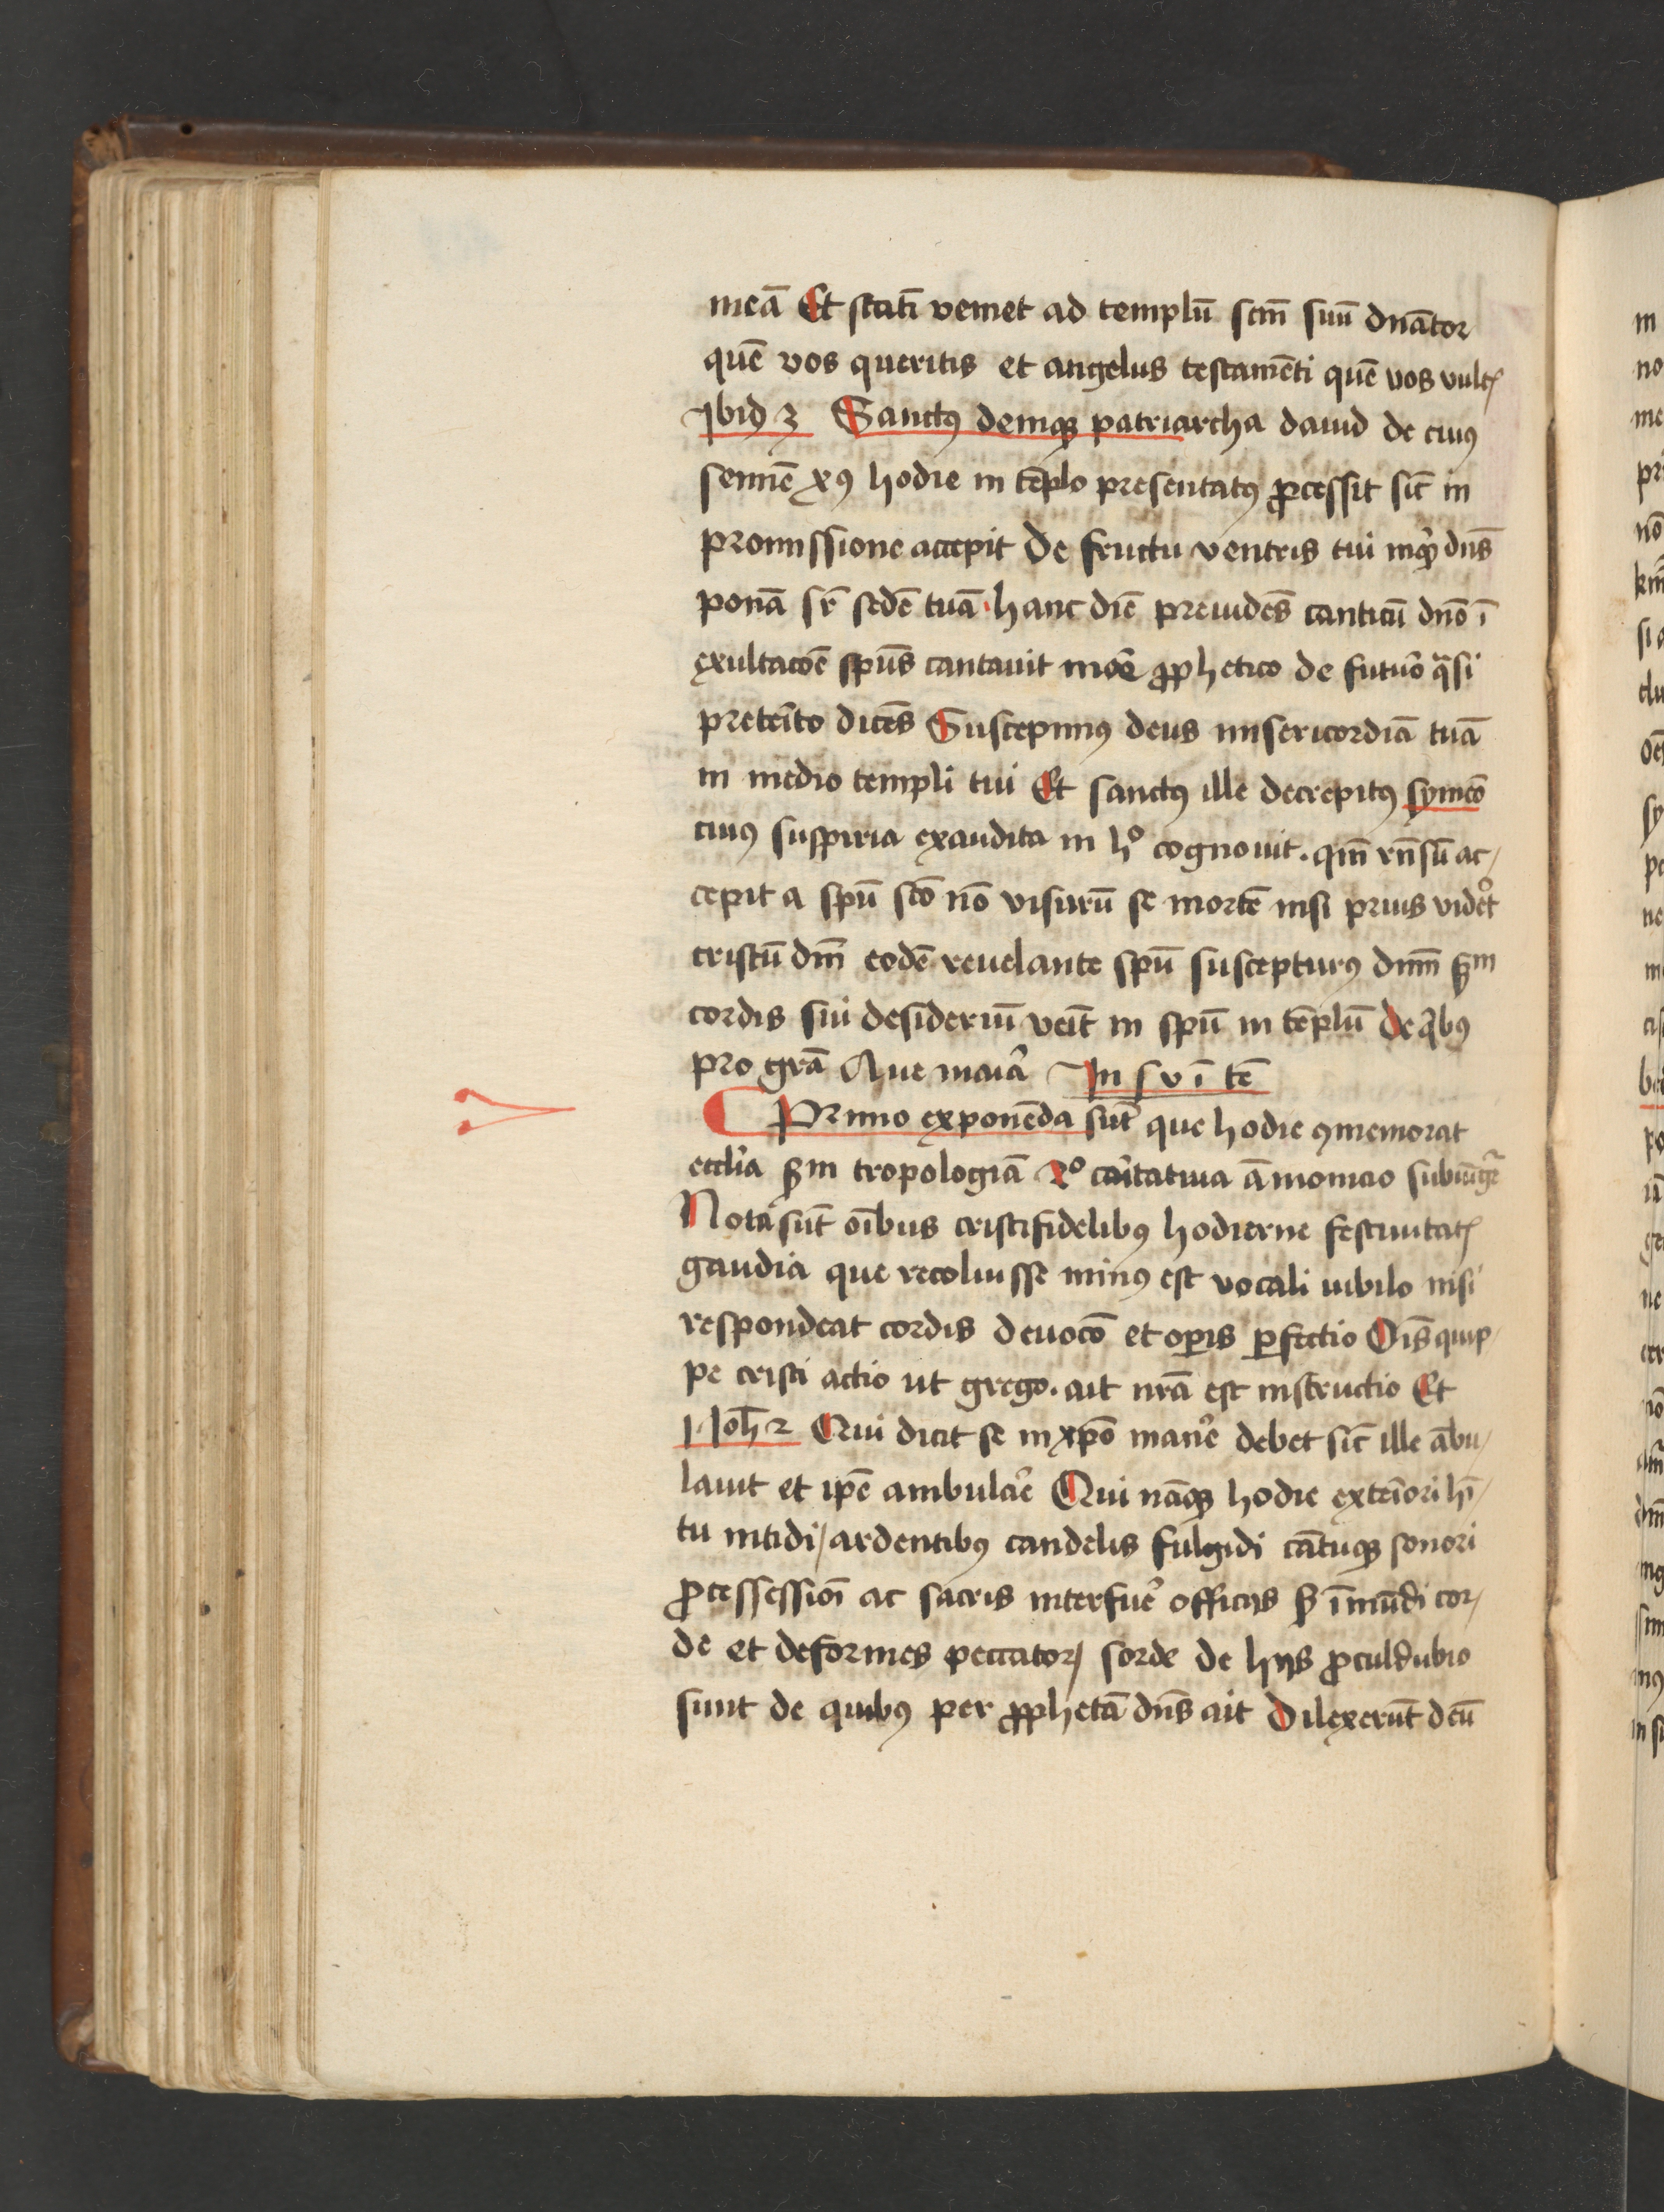 meā Et statī veniet ad templū scm̄ suū dnātor
quē vos queritis et angelus testamēti quē vos vultꝭ
Ibidꝫ 3 Sanctꝰ deniqꝫ patriarcha dauid de cuiꝰ
semīe xꝰ hodie in tēplo presentatꝰ ꝓcessit sic̄ in
promissione accepit De fructu ventris tui inqͥt dn̄s
ponā sr̄ sedē tuā hanc diē preuidēs canticū dn̄o ī
exultacōe spūs cantauit more ꝓphetico de futuͦ qͣsi
preteͥto dicēs Suscepimꝰ deus misericordiā tuā
in medio templi tui Et sanctꝰ ille decrepitꝰ symeō
cuiꝰ suspiria exaudita in hͦ cognouit. qm̄ rn̄sū ac/
cepit a spū sc̄o nō visurū se mortē nisi prius videͦt
cristū dm̄ eodē reuelante spū suscepturꝰ dnm̄ ẜm
cordis sui desideriū veīt in spū in tēplū de qͥbꝰ
pro grā Aue maiā In s v ī tē
Primo exponēda sūt que hodie ꝯmemorat
eccl̄ia ẜm tropologiā 2ͦ caͥtatiua āmonicio subiūgͣ
Nota sūt oībus cristifidelibꝰ hodierne festiuitatꝭ
gaudia que recoluisse minꝰ est vocali iubilo nisi
respondeat cordis deuocō et oꝑis ꝑfectio Oīs quip/
pe cristi actio ut grego. ait nrā est instructio Et
1 Ioh̄ 2 Qui dicit se in xpō maner̄ debet sic̄ ille ābu/
lauit et ip̄e ambular̄ Qui nāqꝫ hodie exteͥori hī/
tu nitidi/ ardentibꝰ candelis fulgidi cātuqꝫ sonori
ꝓcessessioī ac sacris interfuēr officijs ẜ īmūdi cor/
de et deformes peccatorꝭ sorde de hijs ꝓculdubio
sunt de quibꝰ per ꝓphetā dn̄s ait Dilexerūt deū